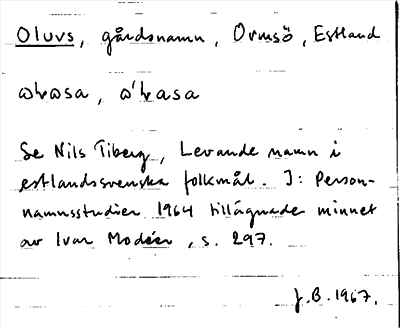 Oluvs, gårdsnamn, Ormsö, Estland
Se Nils Tiberg, Levande namn i
estlandssvenska folkmål. I: Person-
namnsstudier 1964 tillägnade minnet
av Ivar Modéer, s. 297.
J.B. 1967.